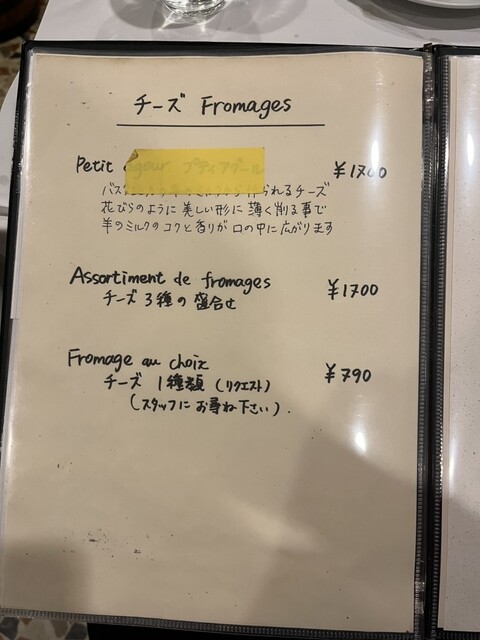 チーズ Fromages
Petit agour プティアグール ¥1700
られるチーズ
花びらのように美しい形に薄く削る事で
羊のミルクのコクと香りが口の中に広がります
Assortiment de fromages ¥1700
チーズ3種の盛合せ
Fromage au choix ¥790
チーズ 1種類 (リクエスト)
(スタッフにお尋ね下さい).